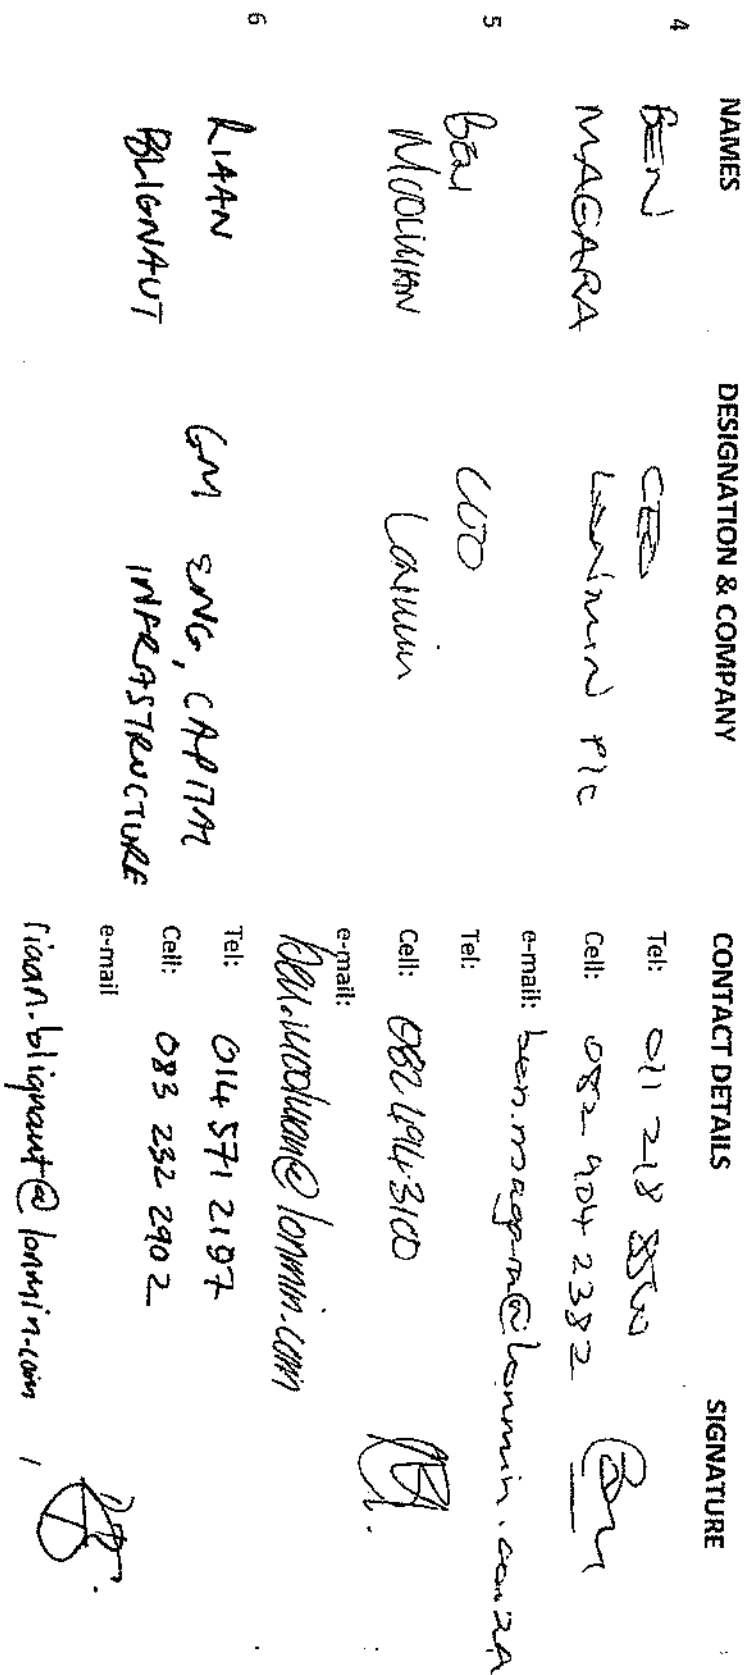 NAMES DESIGNATION & COMPANY CONTACT DETAILS SIGNATURE
4 BEN MAGARA CEO Lonmin Plc Tel: 011 218
Cell: 082 904 2382
e-mail: @lonmin.co.za
5 Ben Moolman Lonmin Tel:
Cell: 082 494 3100
e-mail:
ben.moolman@lonmin.com
6 RIAAN BLIGNAUT GM ENG, CAPITAL INFRASTRUCTURE Tel: 014 571 2197
Cell: 083 232 2902
e-mail
riaan.blignaut@lonmin.com